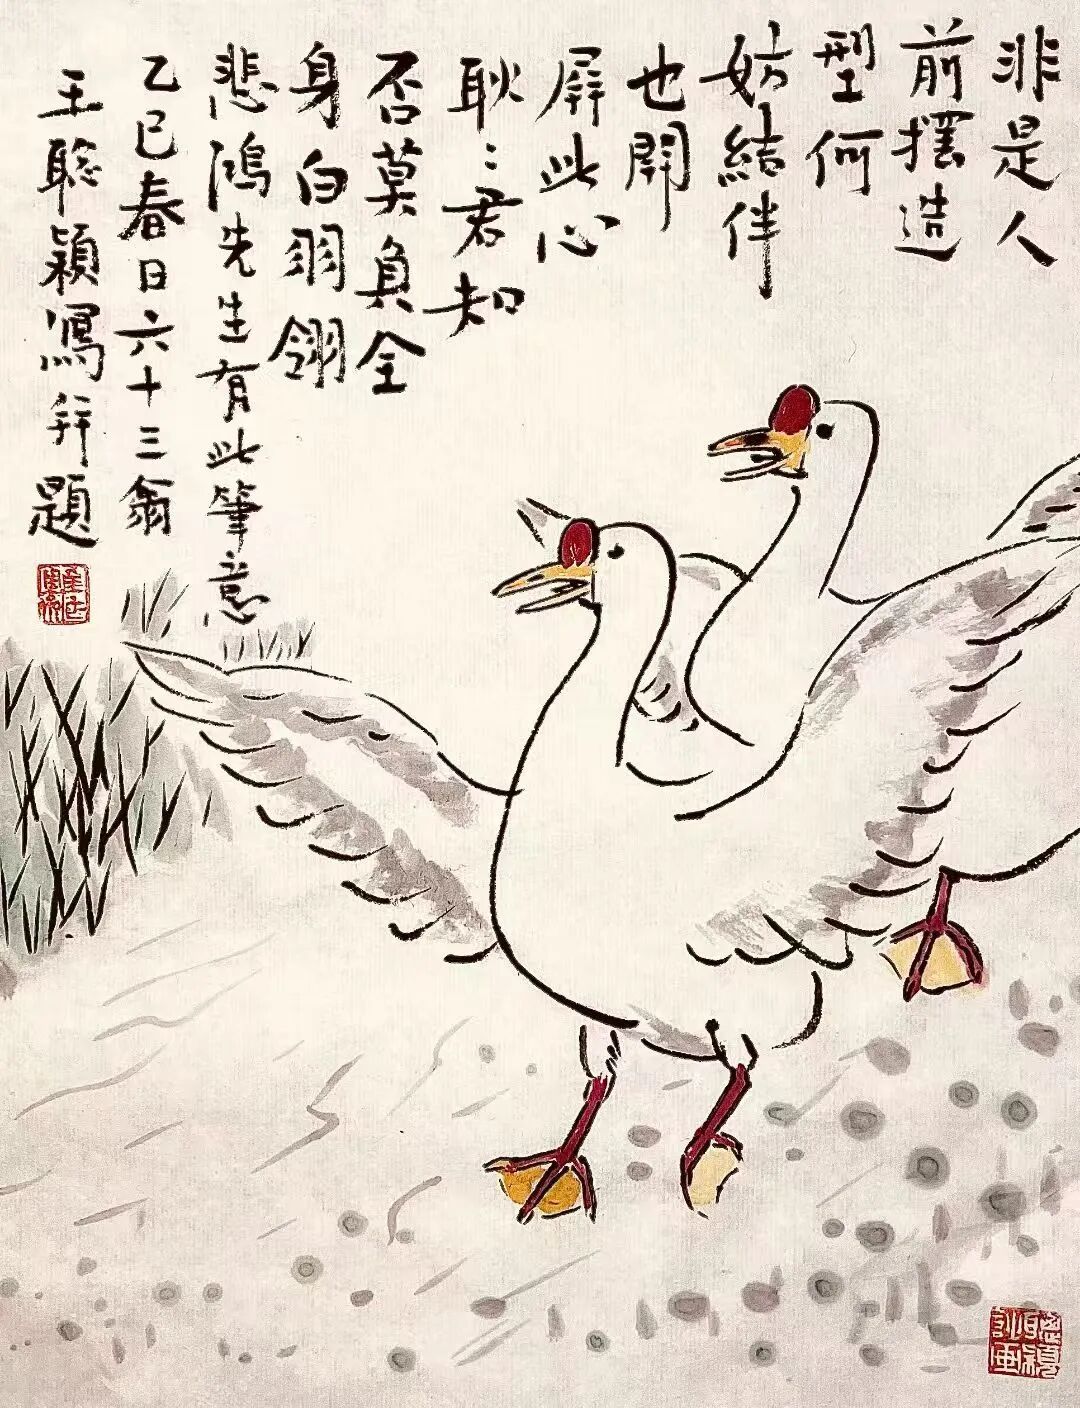 非是人
前擺造
型何
妨結伴
也開
屏此心
耿〻君知
否莫負全
身白羽翎
悲鴻先生有此筆意
乙巳春日六十三翁
王聡穎寫并題